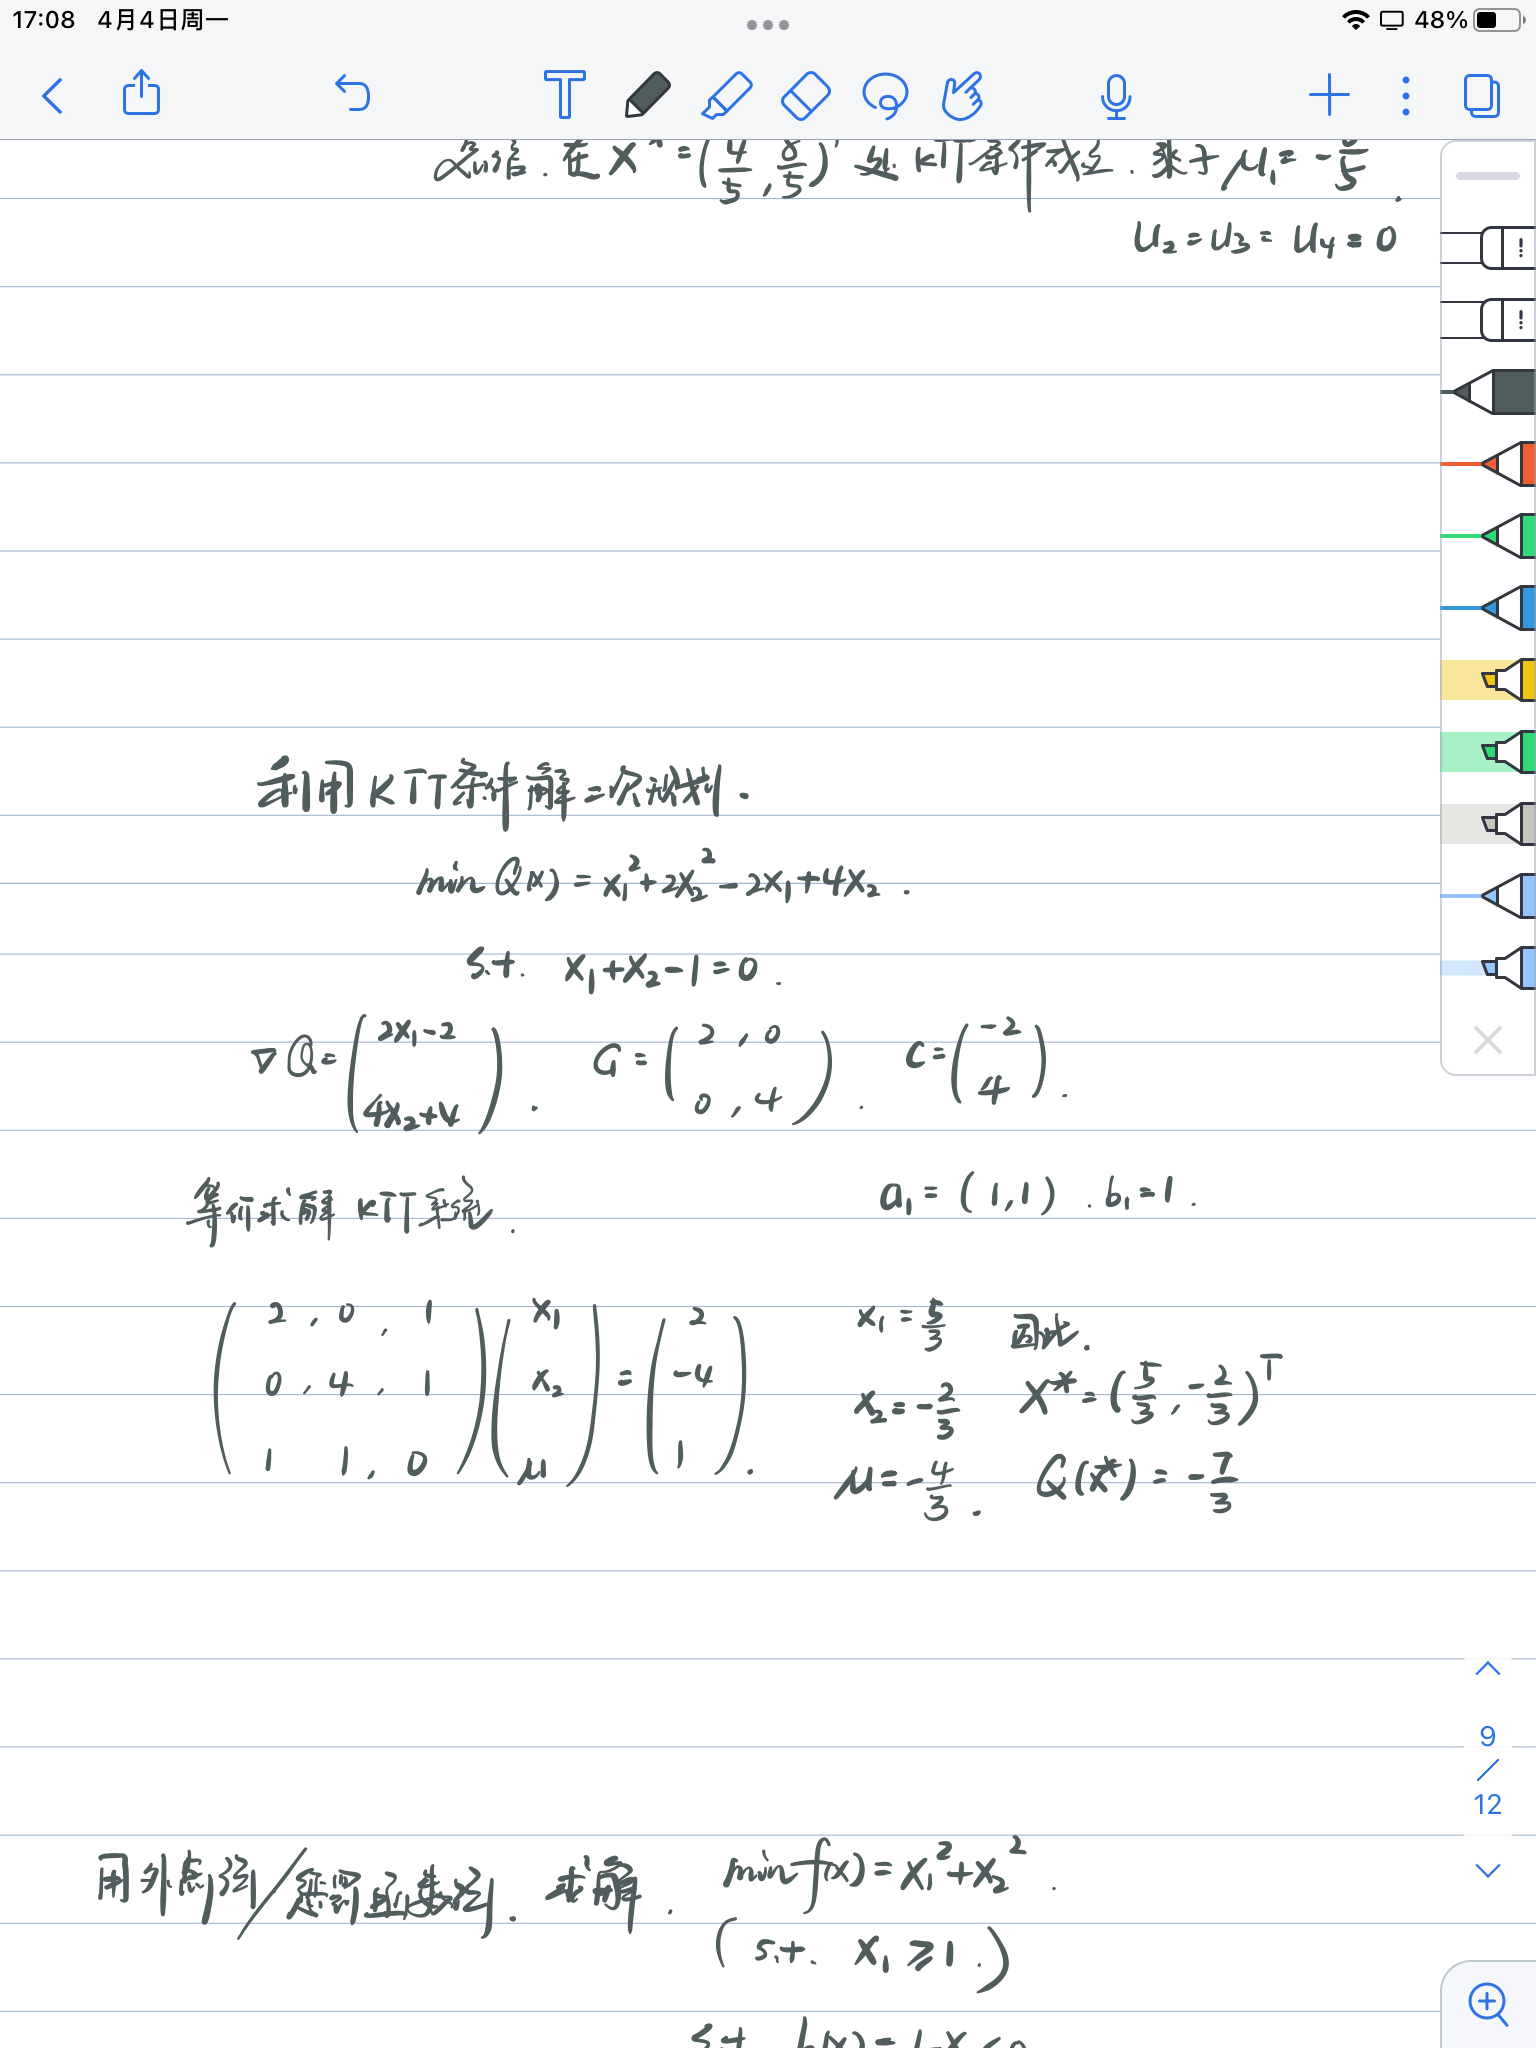 17:08 4月4日周一 48%
总结. 在 X* = (4/5, 8/5)ᵀ 处 KTT条件成立. 乘子 μ₁ = -8/5.
u₂ = u₃ = u₄ = 0
利用 KTT条件解二次规划.
min Q(x) = x₁² + 2x₂² - 2x₁ + 4x₂.
s.t. x₁ + x₂ - 1 = 0.
∇Q = (2x₁-2; 4x₂+4). G = (2, 0; 0, 4). C = (-2; 4).
等价求解 KTT系统. a₁ = (1,1). b₁ = 1.
(2, 0, 1; 0, 4, 1; 1 1, 0)(x₁; x₂; μ) = (2; -4; 1).
x₁ = 5/3 因此.
x₂ = -2/3 X* = (5/3, -2/3)ᵀ
μ = -4/3. Q(x*) = -7/3
9
/
12
用外点法/惩罚函数法. 求解. min f(x) = x₁² + x₂².
(s.t. x₁ ≥ 1.)
s.t. h(x) = 1-x ≤ 0